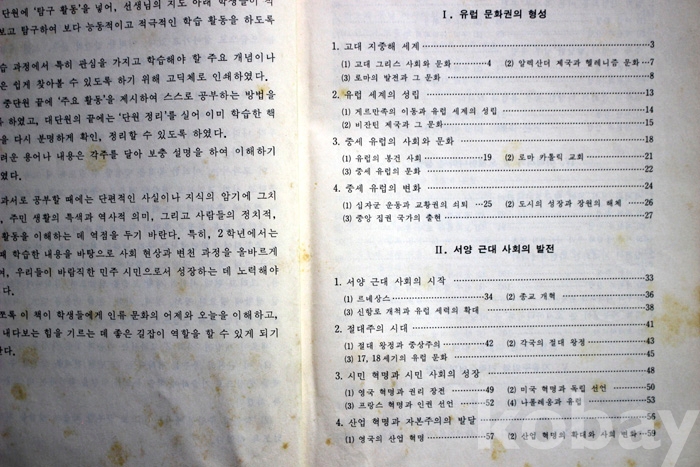 단원에 '탐구 활동'을 넣어, 선생님의 지도 아래 학생들이 직
보고 탐구하여 보다 능동적이고 적극적인 학습 활동을 하도록
습 과정에서 특히 관심을 가지고 학습해야 할 주요 개념이나
은 쉽게 찾아볼 수 있도록 하기 위해 고딕체로 인쇄하였다.
중단원 끝에 '주요 활동'을 제시하여 스스로 공부하는 방법을
하였고, 대단원의 끝에는 '단원 정리'를 실어 이미 학습한 핵
을 다시 분명하게 확인, 정리할 수 있도록 하였다.
려운 용어나 내용은 각주를 달아 보충 설명을 하여 이해하기
였다.
과서로 공부할 때에는 단편적인 사실이나 지식의 암기에 그치
, 주민 생활의 특색과 역사적 의미, 그리고 사람들의 정치적,
활동을 이해하는 데 역점을 두기 바란다. 특히, 2학년에서는
에 학습한 내용을 바탕으로 사회 현상과 변천 과정을 올바르게
며, 우리들이 바람직한 민주 시민으로서 성장하는 데 노력해야
다.
쪼록 이 책이 학생들에게 인류 문화의 어제와 오늘을 이해하고,
내다보는 힘을 기르는 데 좋은 길잡이 역할을 할 수 있게 되기
한다.
Ⅰ. 유럽 문화권의 형성
1. 고대 지중해 세계 3
(1) 고대 그리스 사회와 문화 4 (2) 알렉산더 제국과 헬레니즘 문화 7
(3) 로마의 발전과 그 문화 8
2. 유럽 세계의 성립 13
(1) 게르만족의 이동과 유럽 세계의 성립 14
(2) 비잔틴 제국과 그 문화 15
3. 중세 유럽의 사회와 문화 18
(1) 유럽의 봉건 사회 19 (2) 로마 카톨릭 교회 21
(3) 중세 유럽의 문화 22
4. 중세 유럽의 변화 24
(1) 십자군 운동과 교황권의 쇠퇴 25 (2) 도시의 성장과 장원의 해체 26
(3) 중앙 집권 국가의 출현 27
Ⅱ. 서양 근대 사회의 발전
1. 서양 근대 사회의 시작 33
(1) 르네상스 34 (2) 종교 개혁 36
(3) 신항로 개척과 유럽 세력의 확대 38
2. 절대주의 시대 41
(1) 절대 왕정과 중상주의 42 (2) 각국의 절대 왕정 43
(3) 17, 18세기의 유럽 문화 45
3. 시민 혁명과 시민 사회의 성장 48
(1) 영국 혁명과 권리 장전 49 (2) 미국 혁명과 독립 선언 50
(3) 프랑스 혁명과 인권 선언 52 (4) 나폴레옹과 유럽 53
4. 산업 혁명과 자본주의의 발달 56
(1) 영국의 산업 혁명 57 (2) 산업 혁명의 확대와 사회 변화 59
kobay